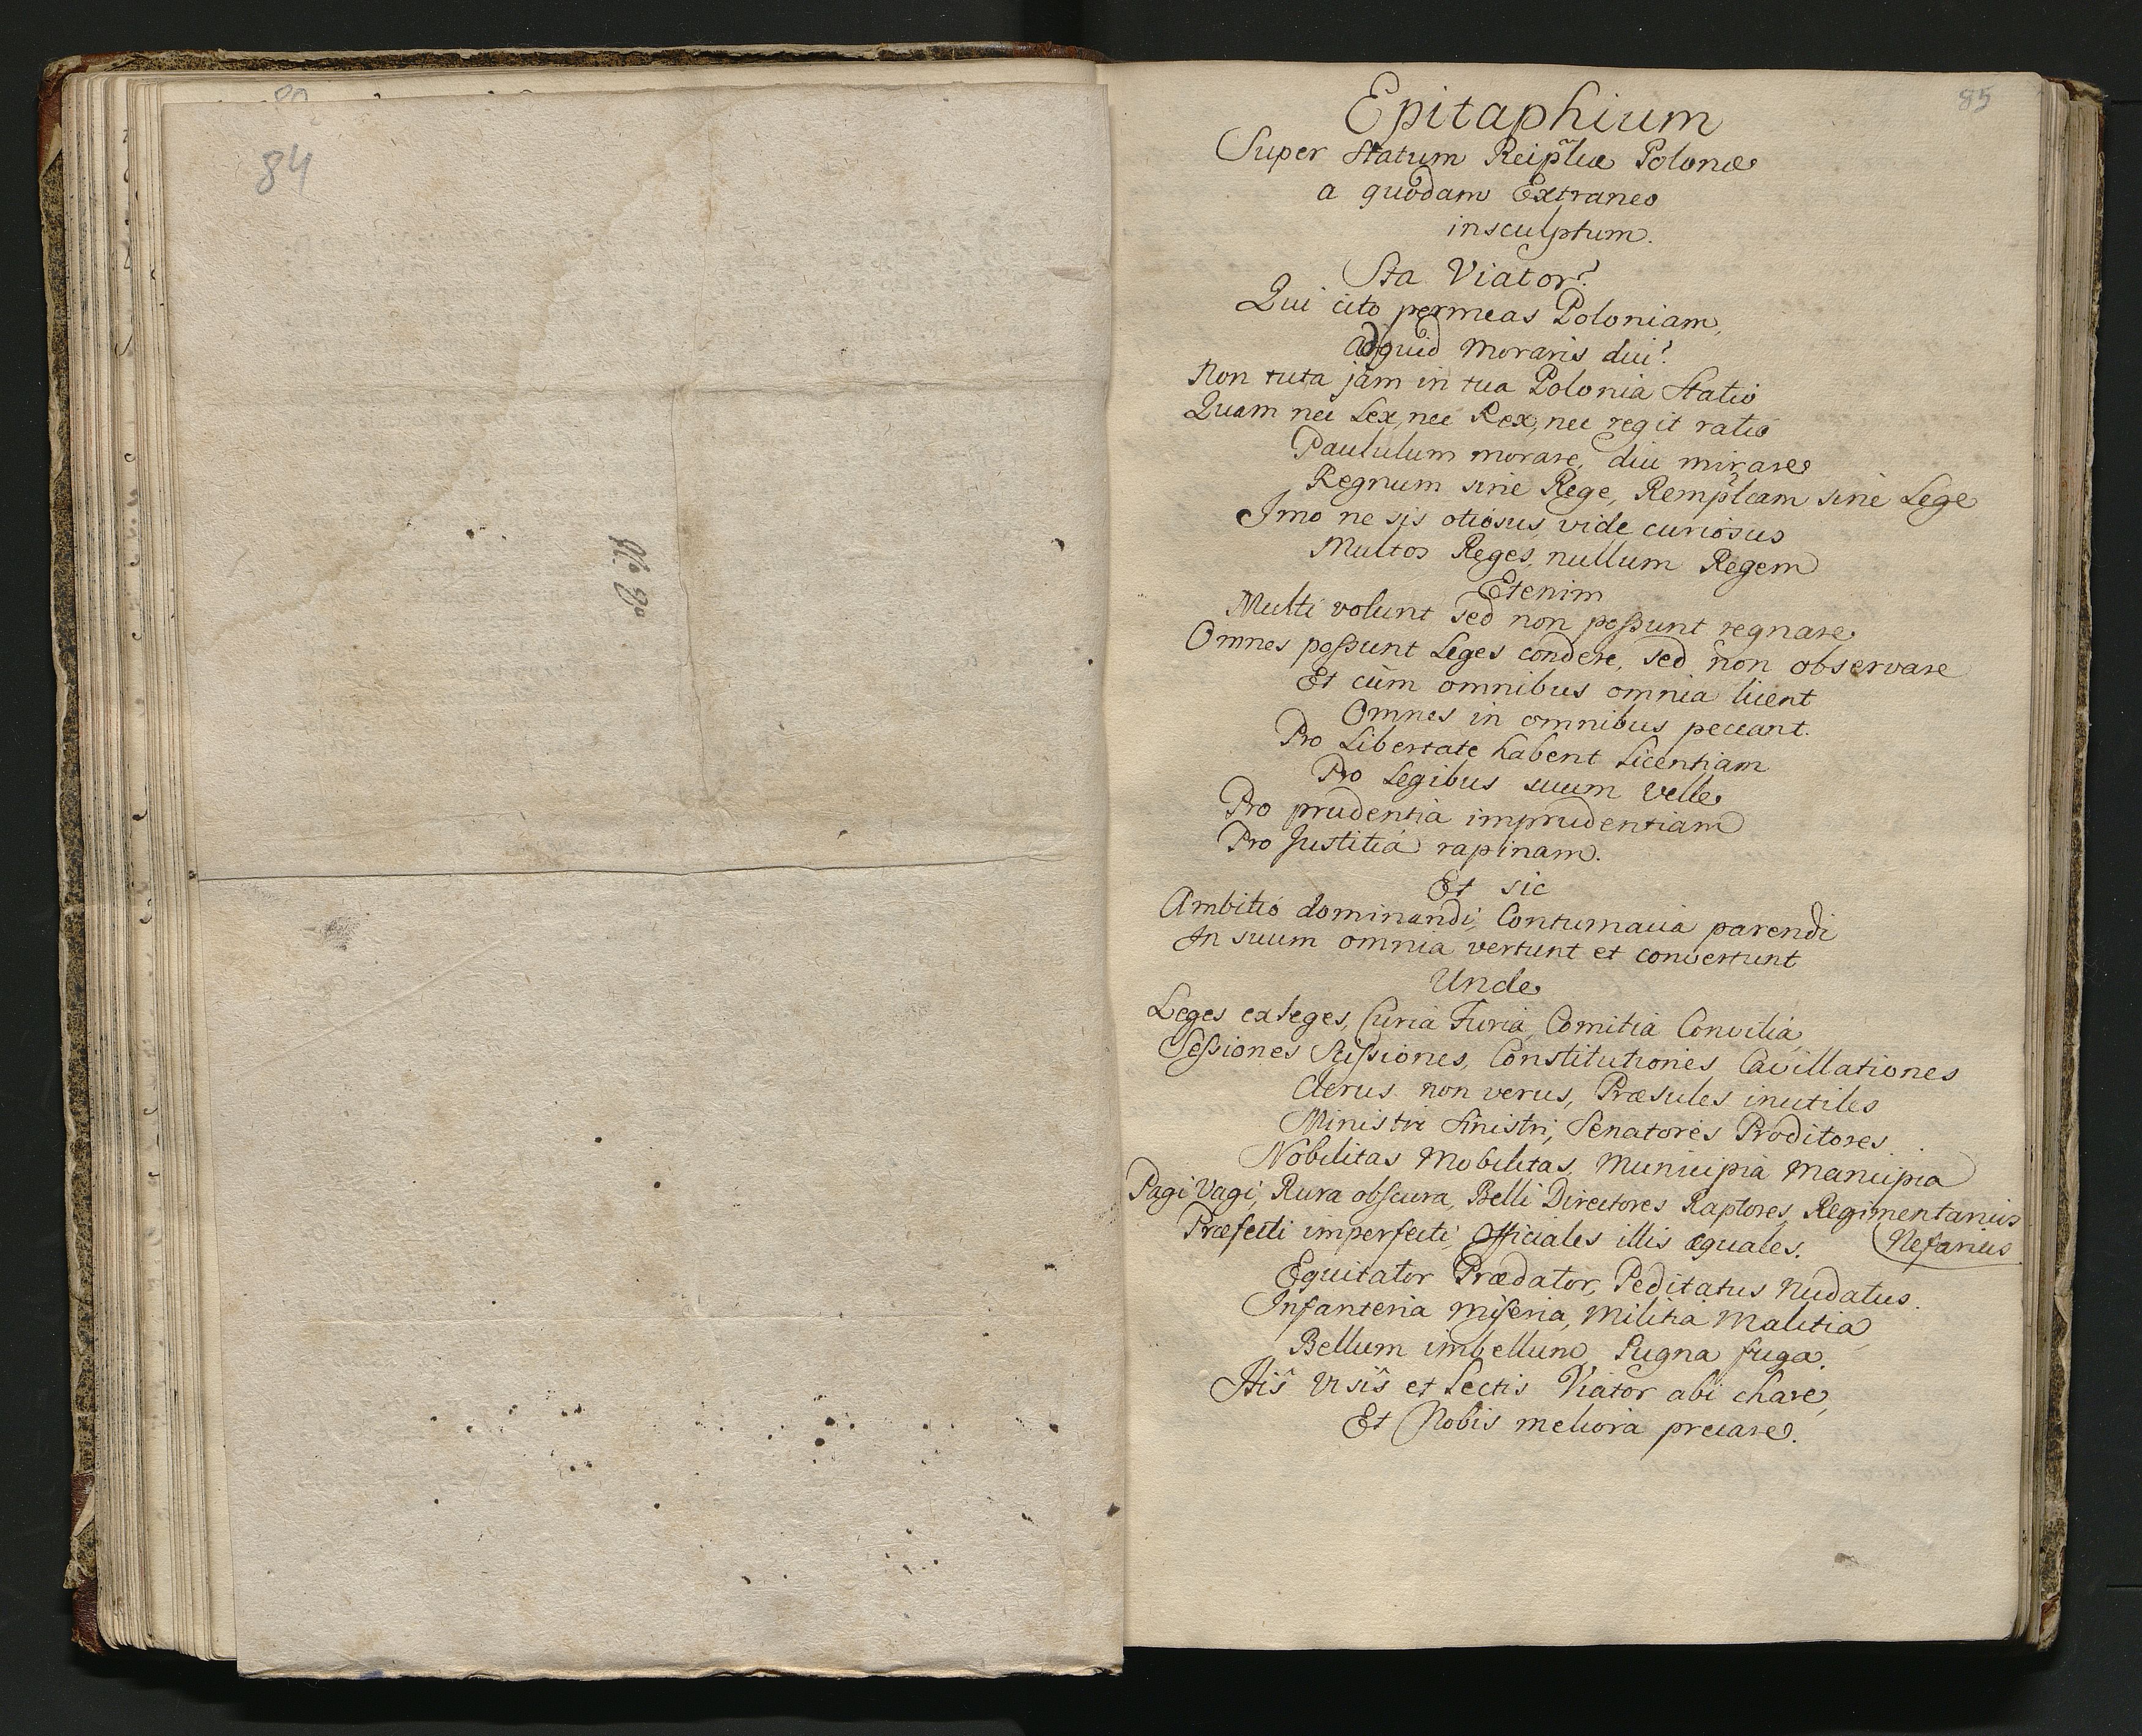 84
85
Epitaphium
Super Statum Reip̃licæ Polonæ
a quodam Extraneo
insculptum.
Sta Viator?
Qui cito permeas Poloniam,
adquid moraris diu?
Non tuta jam in tua Polonia Statio
Quam nec Lex, nec Rex, nec regit ratio
Paululum morare, diu mirare
Regnum sine Rege, Remp̃lcam sine Lege
Imo ne sis otiosus, vide curiosus
Multos Reges, nullum Regem
Etenim
Multi volunt sed non possunt regnare
Omnes possunt Leges condere, sed non observare
Et cùm omnibus omnia licent
Omnes in omnibus peccant.
Pro Libertate habent Licentiam
Pro Legibus suum velle
Pro prudentia imprudentiam
Pro Justitia rapinam.
Et sic
Ambitio dominandi, Contumacia parendi
In suum omnia vertunt et convertunt
Unde
Leges exleges, Curia Furia, Comitia Convitia,
Sessiones Scissiones, Constitutiones Cavillationes
Clerus non verus, Præsules inutiles
Ministri Sinistri, Senatores Proditores
Nobilitas Mobilitas, Municipia Mancipia
Pagi Vagi, Rura obscura, Belli Directores Raptores, Regimentarius
Præfecti imperfecti, Officiales illis æquales. (Nefarius
Equitator Prædator, Peditatus Nudatus.
Infanteria miseria, Militia Malitia,
Bellum imbellum, Pugna fuga.
His visis et Lectis Viator abi chare,
Et Nobis meliora precare.